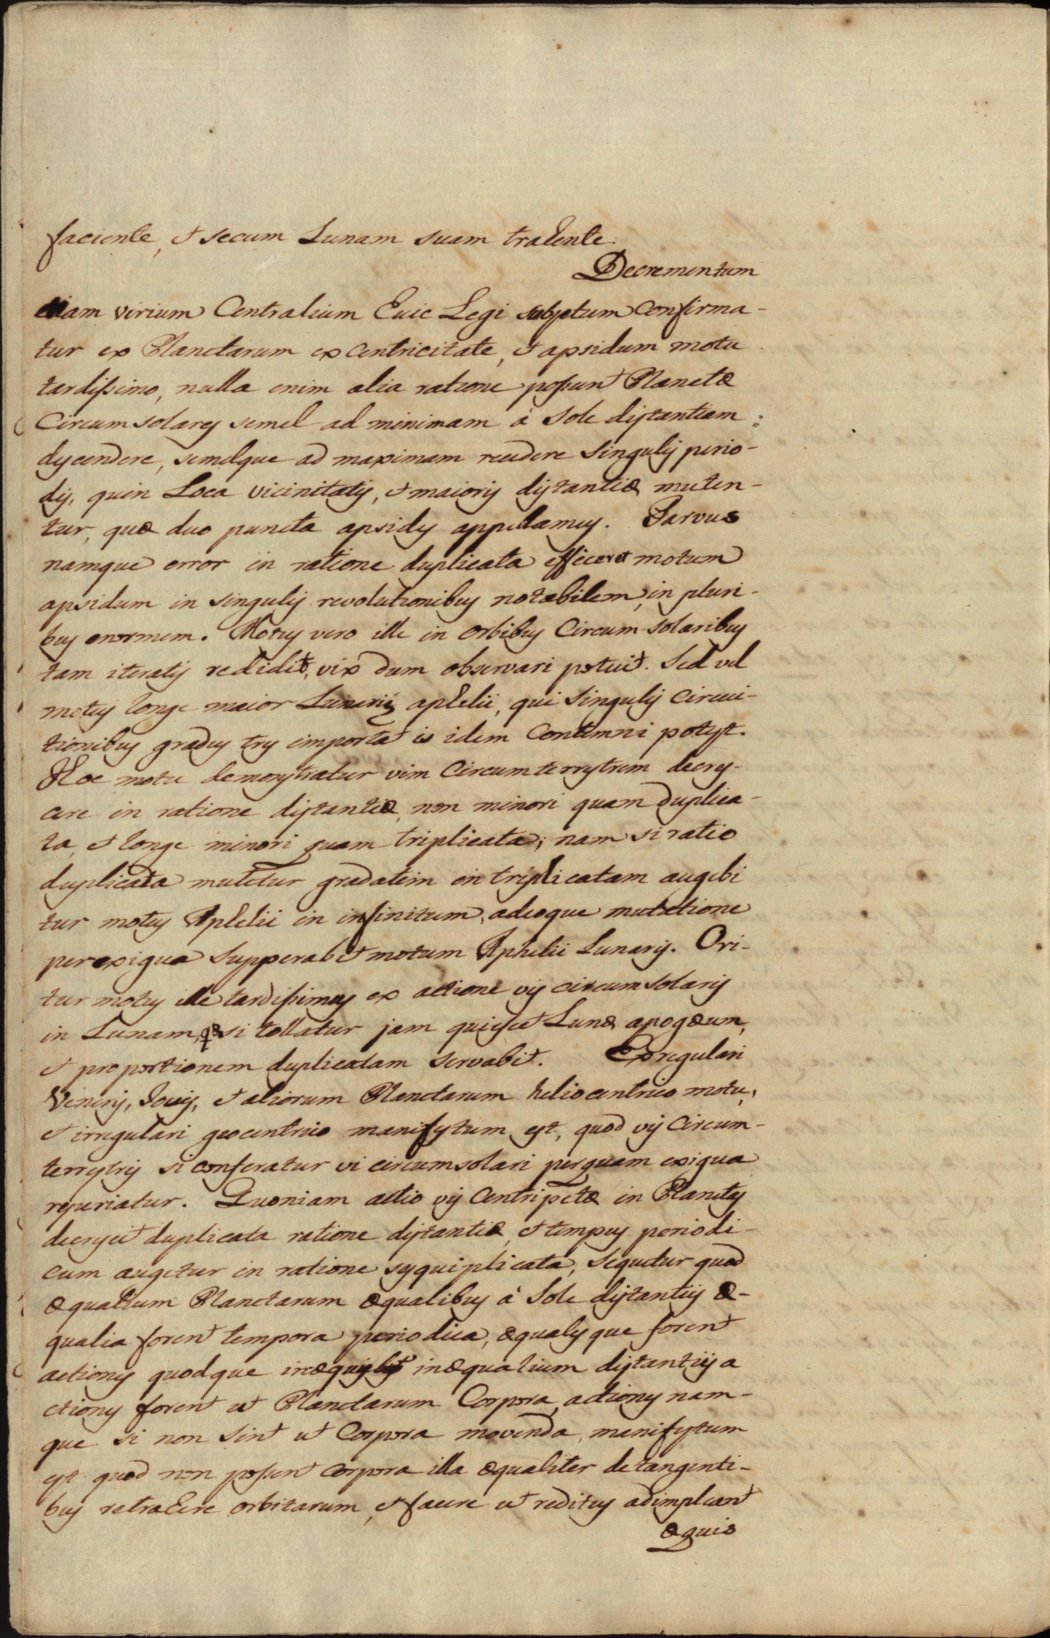 faciente, et secum Lunam suam trahente.
Decrementum
etiam virium Centralium huic Legi subjectum confirma-
tur ex Planetarum excentricitate, et apsidum motu
tardissimo, nulla enim alia ratione possunt Planetæ
Circumsolares semel ad minimam à Sole distantiam
descendere, semelque ad maximam recedere singulis perio-
dis, quin Loca vicinitatis, et maioris distantiæ muten-
tur, quæ duo puncta apsides appellamus. Parvus
namque error in ratione duplicata efficeret motum
apsidum in singulis revolutionibus notabilem, in pluri-
bus enormem. Motus vero ille in orbibus Circum-Solaribus
tam iteratis redidit, vix dum observari potuit. Sed vel
motus longe maior Lunaris aphelii, qui singulis circui-
tionibus gradus tres importat is idem Contemni potest.
Hoc motu demonstratur vim Circumterrestrem decres-
cere in ratione distantiæ, non minori quam duplica-
ta, et longe minori quam triplicata; nam si ratio
duplicata mutetur gradatim in triplicatam augebi
tur motus Aphelii in infinitum, adeoque mutatione
perexigua Supperabit motum Aphelii Lunaris. Ori-
tur motus ille tardissimus ex actione vis circumsolaris
in Lunam, quæ si tollatur jam quiescet Lunæ apogæum,
et proportionem duplicatam servabit. Ex regulari
Veneris, Jovis, et aliorum Planetarum heliocentrico motu,
et irregulari geocentrico manifestum est, quod vis Circum-
terrestris si conferatur vi circumsolari perquam exigua
reperiatur. Quoniam actio vis Centripetæ in Planetis
decrescit duplicata ratione distantiæ, et tempus periodi-
cum augetur in ratione sesquiplicata, sequetur quod
æqualium Planetarum æqualibus à Sole distantiis æ-
qualia forent tempora periodica, æqualesque forent
actiones quodque inæqualium distantiis a
ctiones forent ut Planetarum Corpora, actiones nam-
que si non sint ut Corpora movenda, manifestum
est quod non possunt corpora illa æqualiter de tangenti-
bus retrahere orbitarum, et facere ut reditus adimpleant
æquis